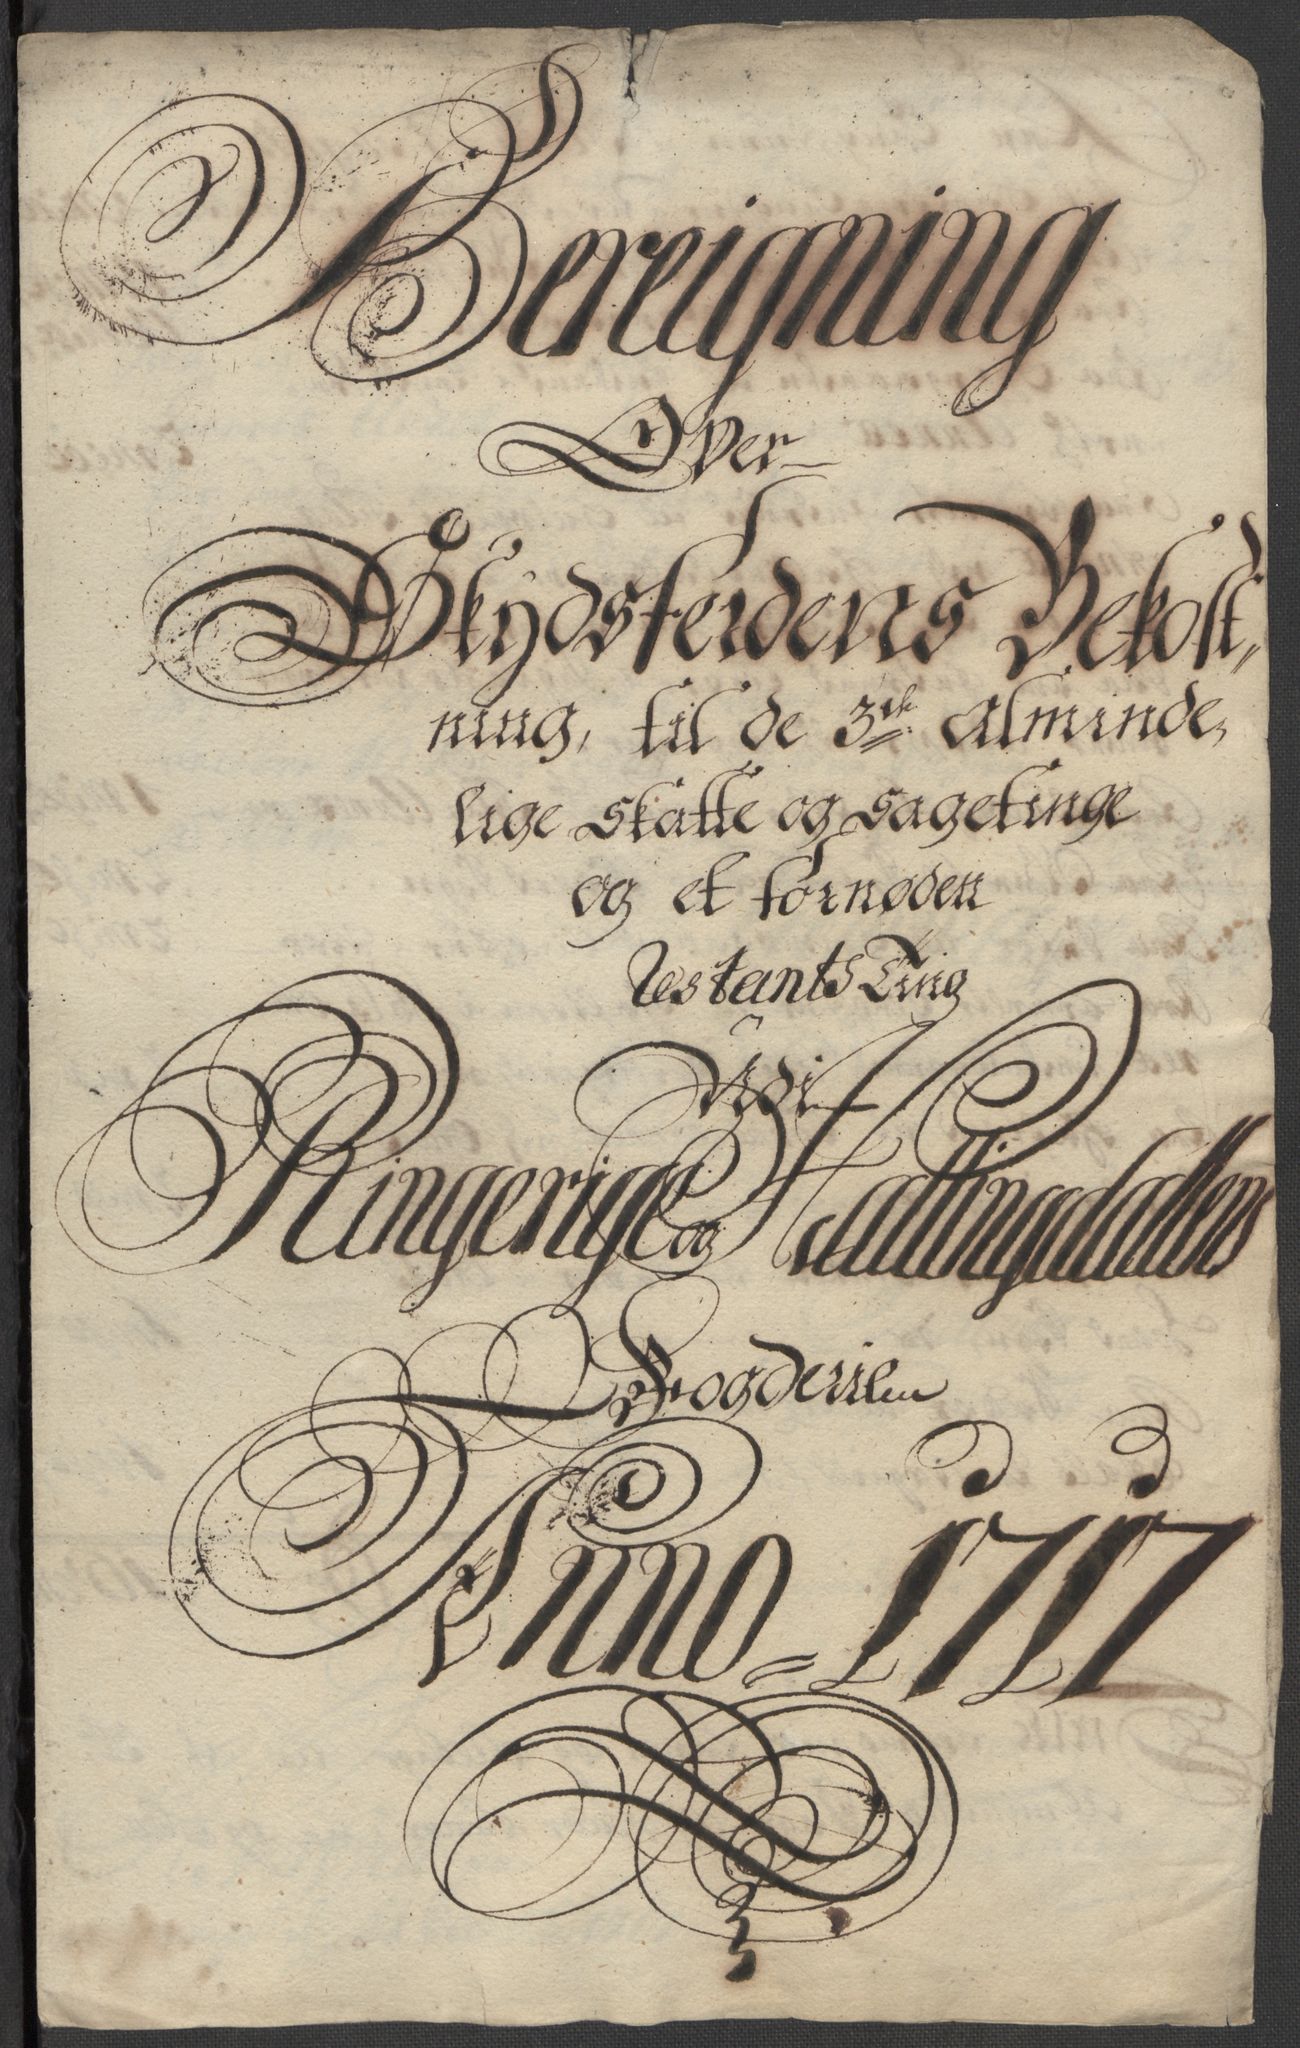 Bereigning
Over
Skydsferdens Bekost-
ning, til de 3de Alminde-
lige Skatte og Sagetinge
og et fornøden
Restants Ting
Udi
Ringerige og Hallingdallens
Fogderie
Anno = 1717